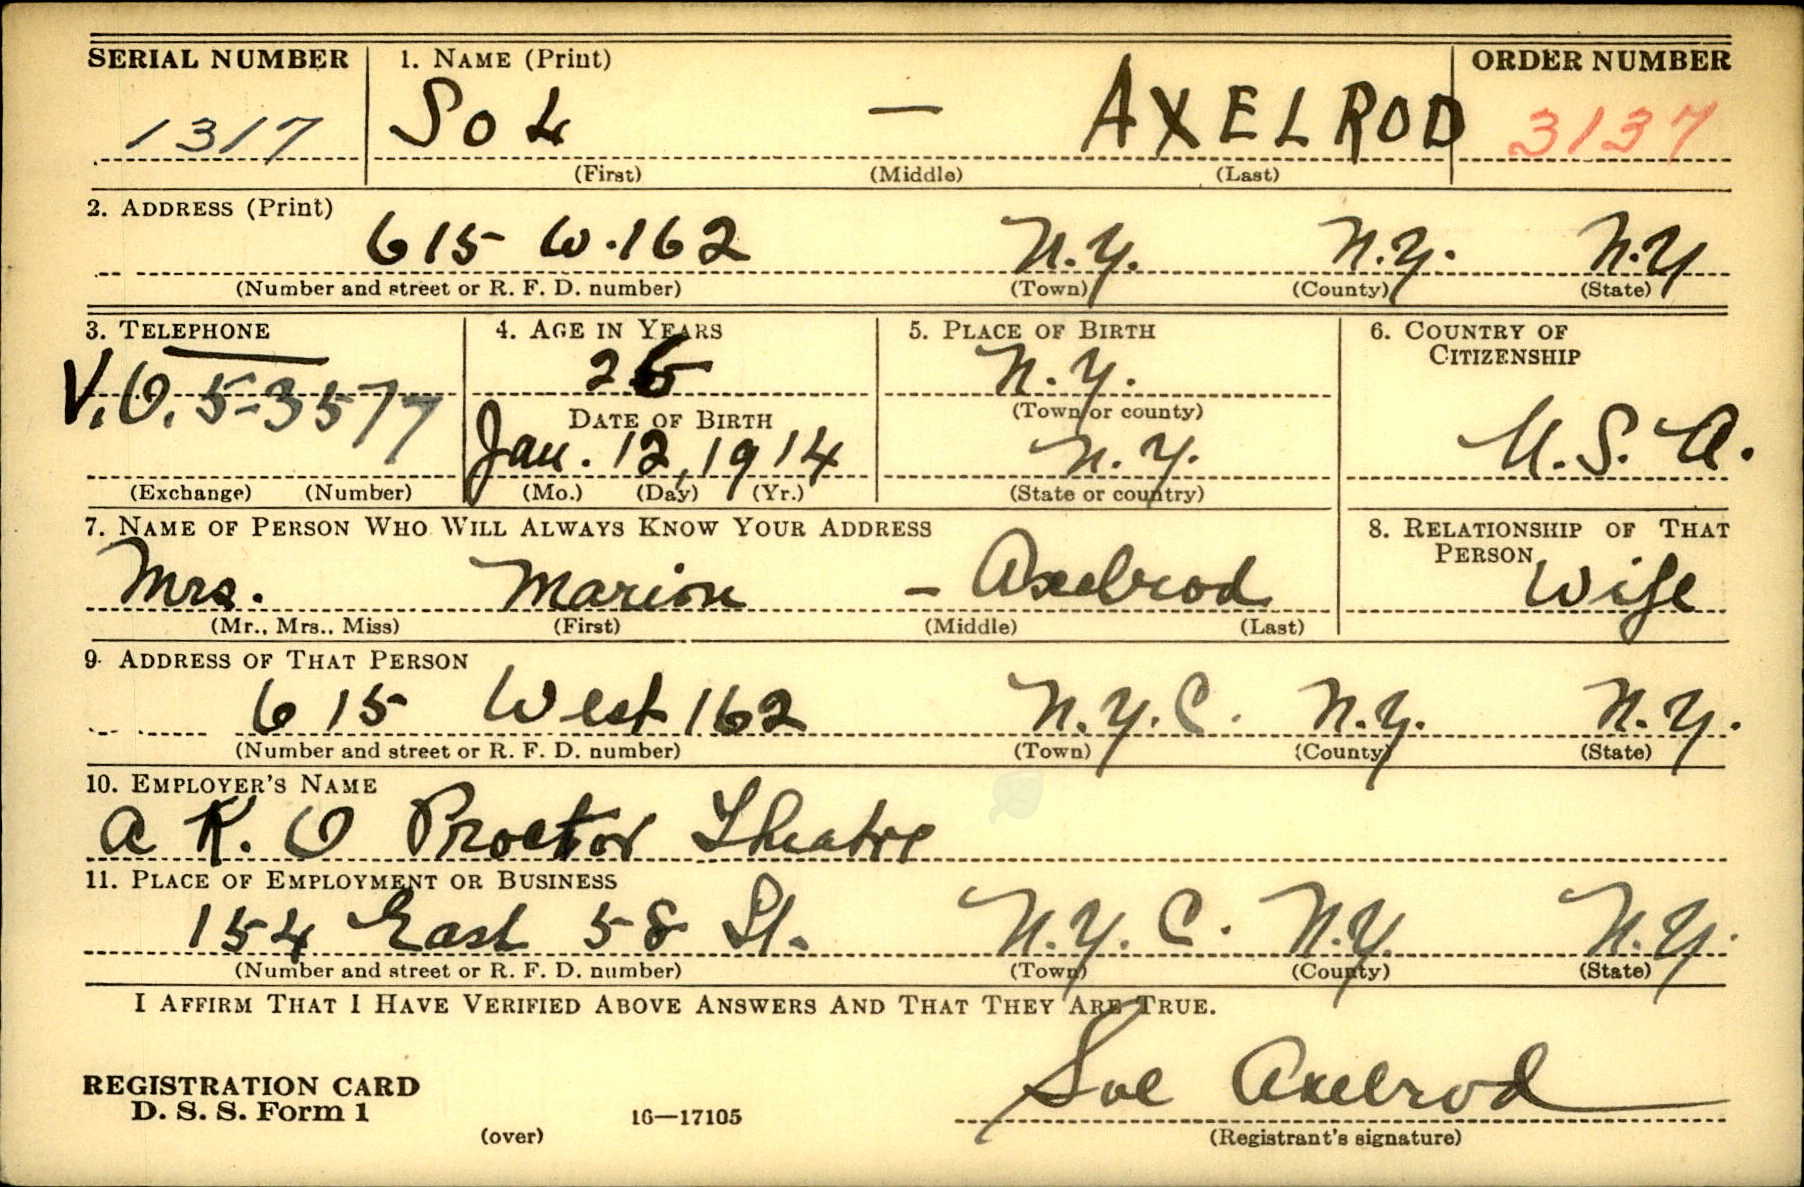 SERIAL NUMBER 1. NAME (Print) ORDER NUMBER
1317 SOL — AXELROD 3137
(First) (Middle) (Last)
2. ADDRESS (Print)
615 W. 162 N.Y. N.Y. N.Y
(Number and street or R. F. D. number) (Town) (County) (State)
3. TELEPHONE 4. AGE IN YEARS 5. PLACE OF BIRTH 6. COUNTRY OF CITIZENSHIP
V.O. 5-3577 26 N.Y.
DATE OF BIRTH (Town or county)
Jan. 12, 1914 N.Y. U.S.A.
(Exchange) (Number) (Mo.) (Day) (Yr.) (State or country)
7. NAME OF PERSON WHO WILL ALWAYS KNOW YOUR ADDRESS 8. RELATIONSHIP OF THAT PERSON
Mrs. Marion — Axelrod Wife
(Mr., Mrs., Miss) (First) (Middle) (Last)
9. ADDRESS OF THAT PERSON
615 West 162 N.Y.C. N.Y. N.Y.
(Number and street or R. F. D. number) (Town) (County) (State)
10. EMPLOYER'S NAME
R K. O Proctor Theatre
11. PLACE OF EMPLOYMENT OR BUSINESS
154 East 58 St. N.Y.C. N.Y. N.Y.
(Number and street or R. F. D. number) (Town) (County) (State)
I AFFIRM THAT I HAVE VERIFIED ABOVE ANSWERS AND THAT THEY ARE TRUE.
REGISTRATION CARD Sol Axelrod
D. S. S. Form 1 16—17105
(over) (Registrant's signature)